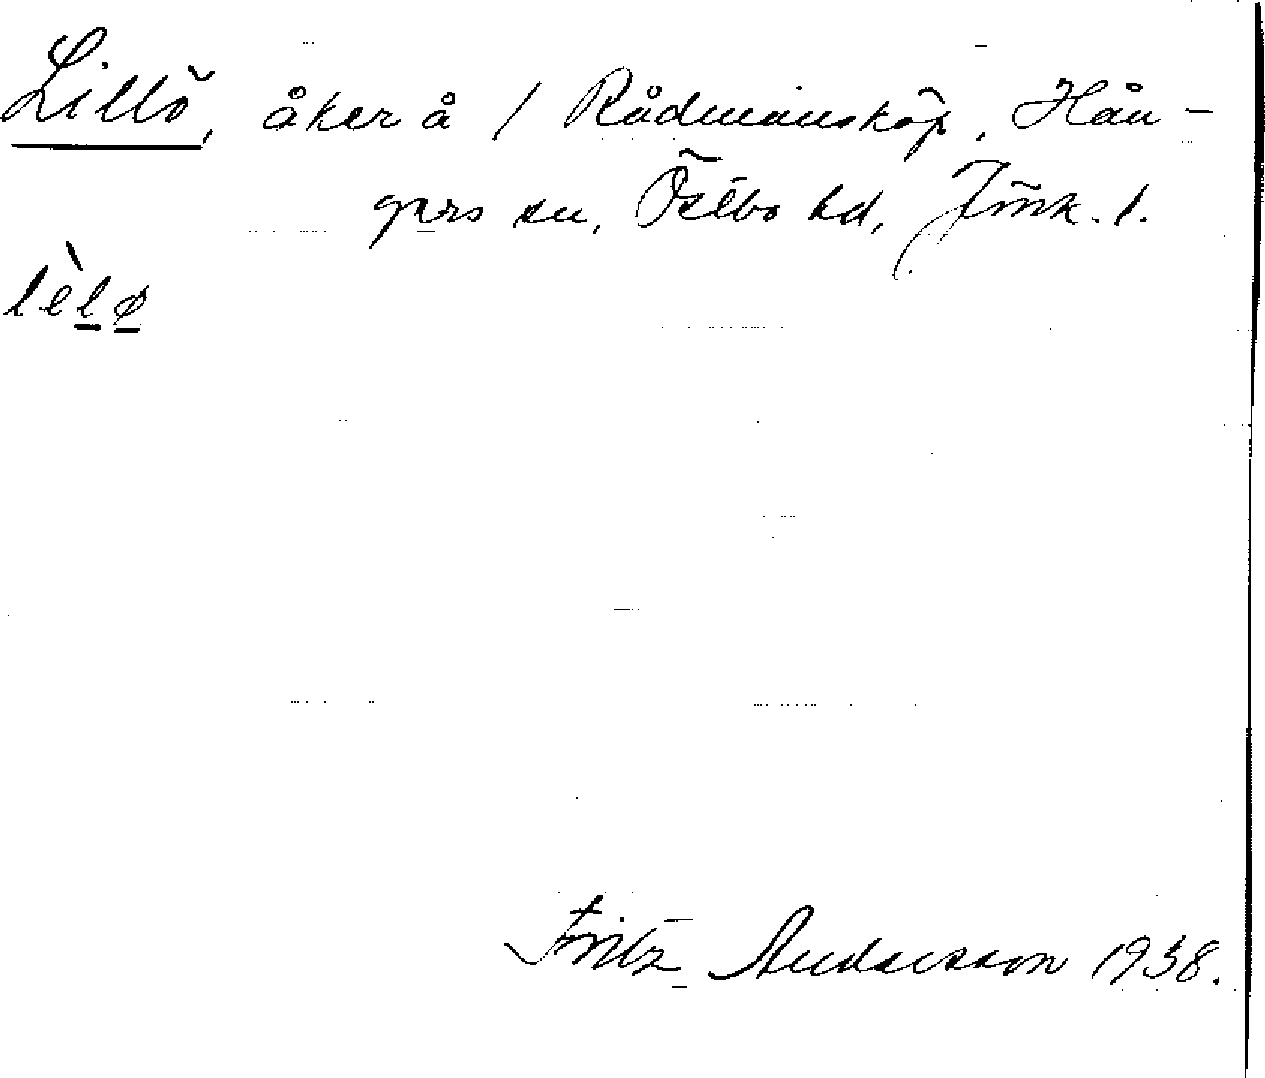 Lillö, åker å / Rådmansköp, Hån-
gers sn, Östbo hd, Jönk. l.
lèlø
Fritz Andersson 1938.